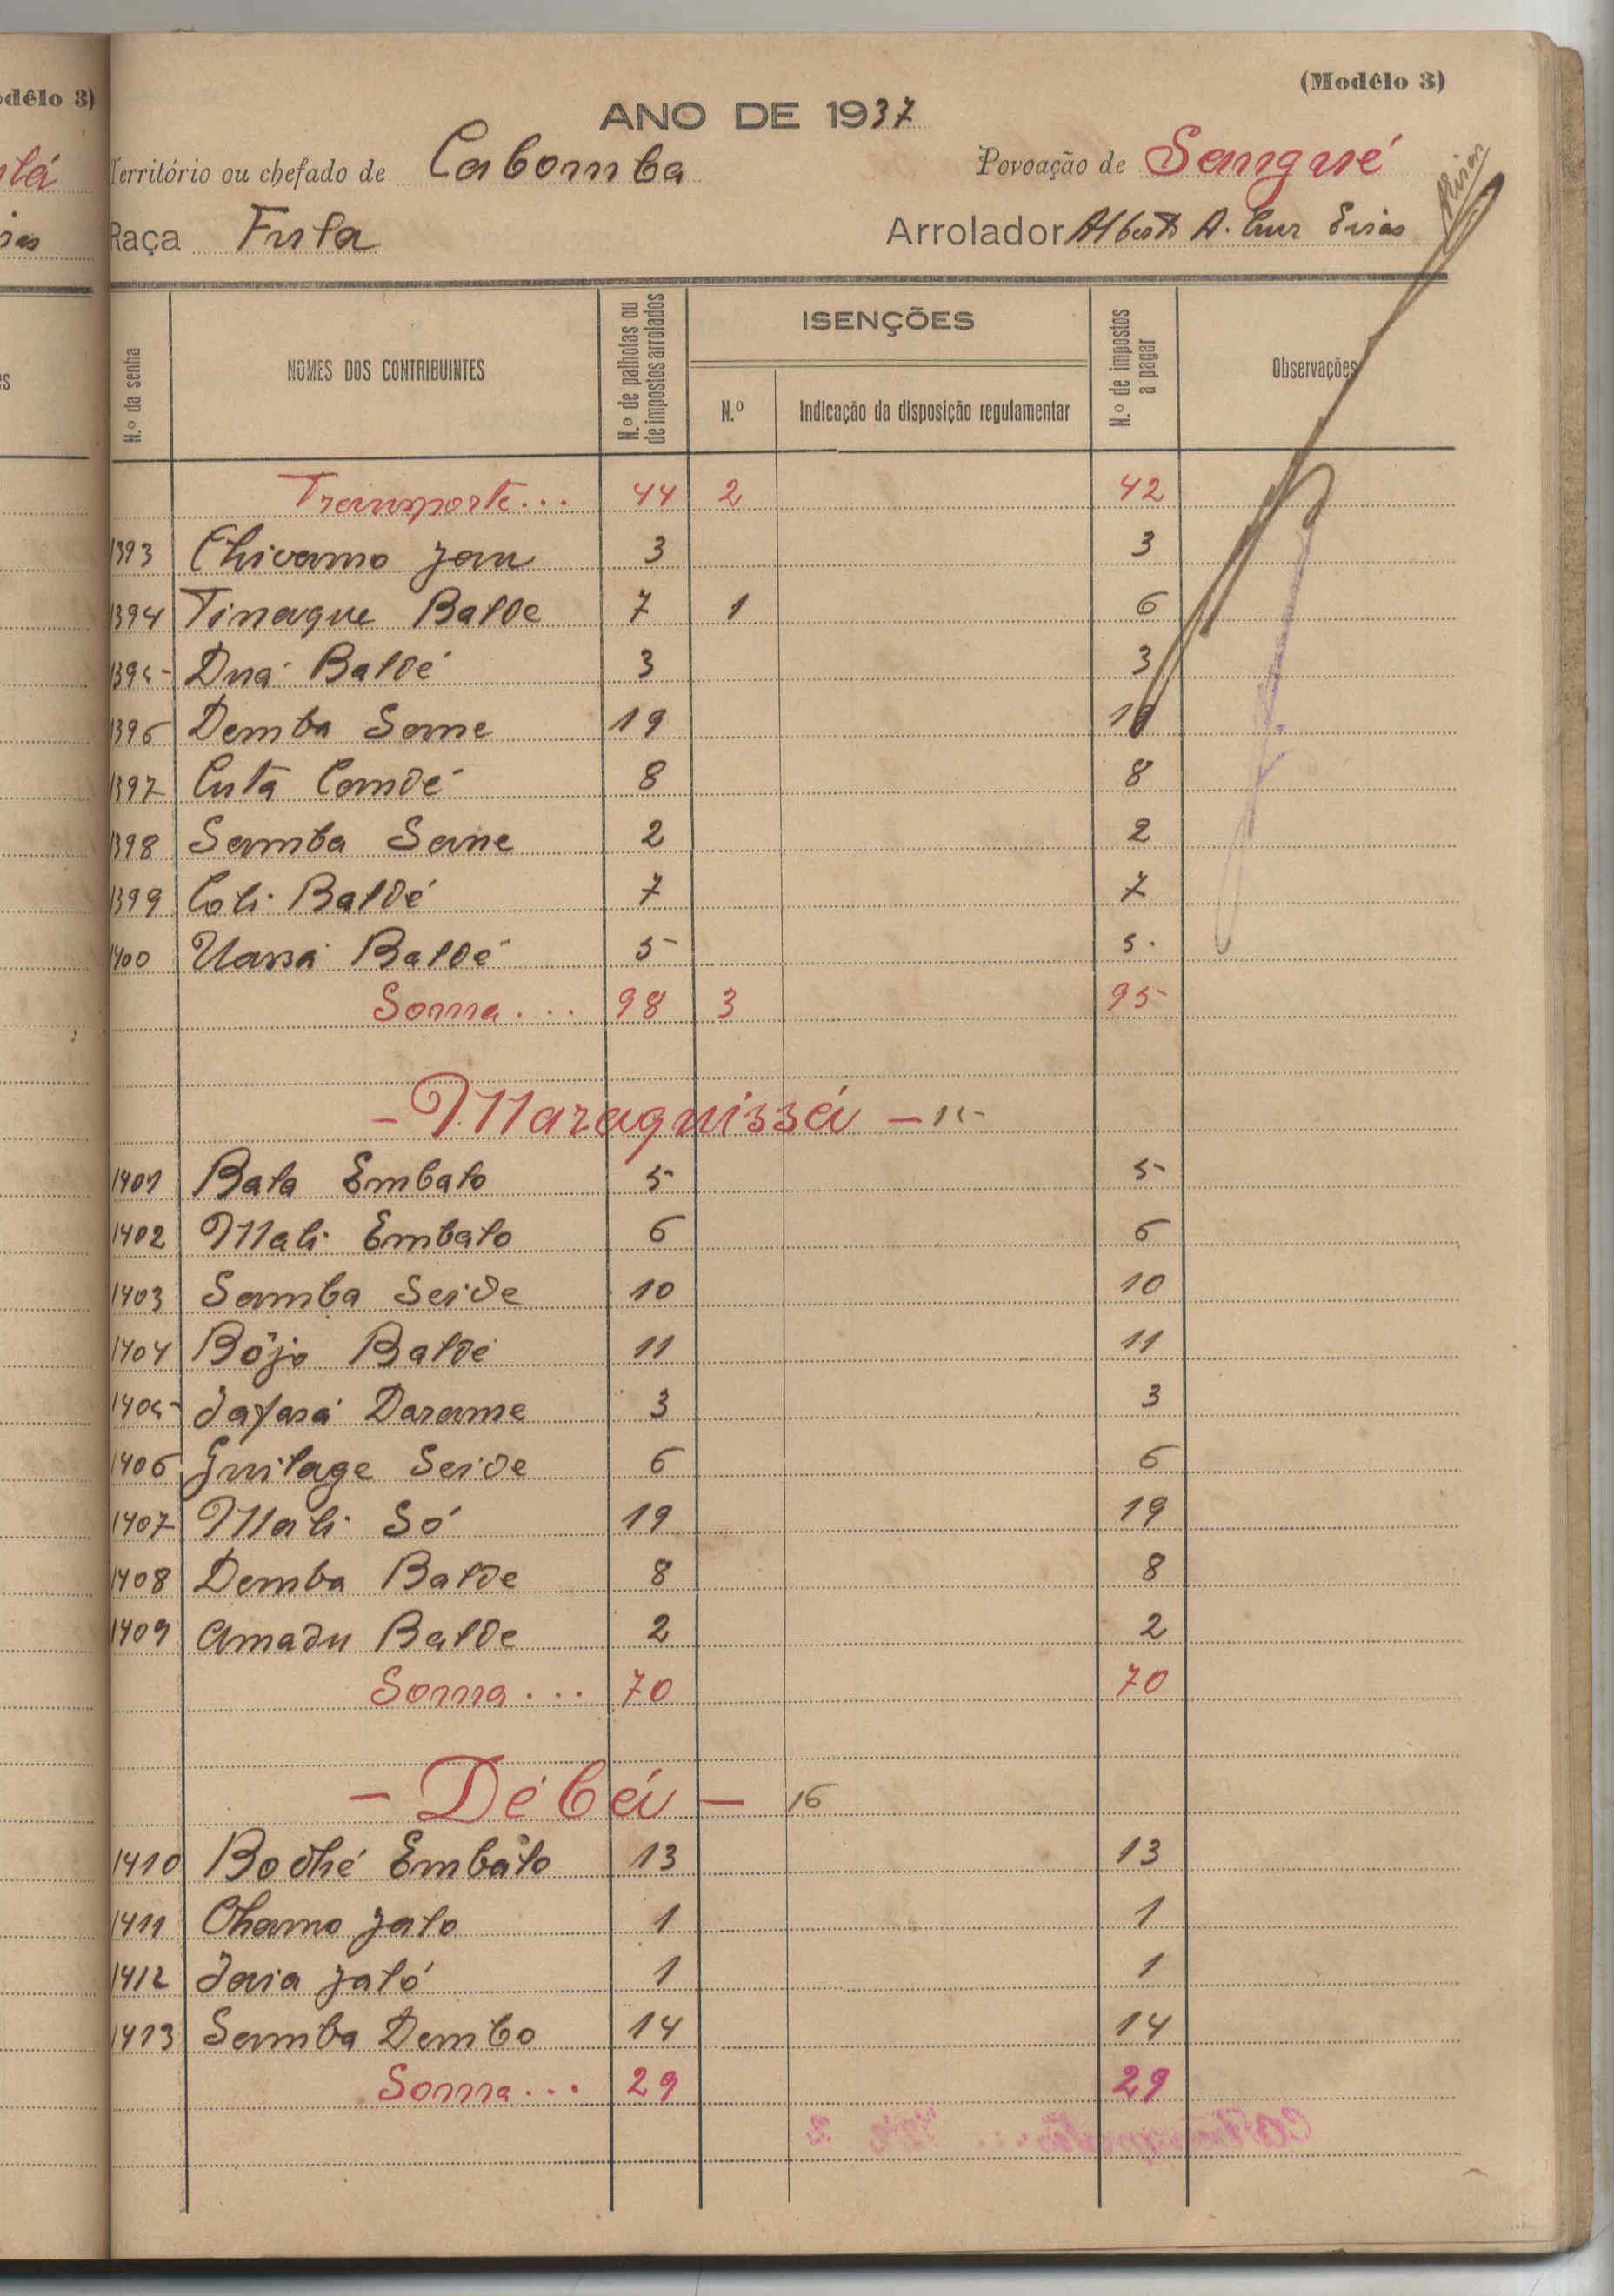 (Modêlo 3)
ANO DE 1937
Território ou chefado de Cabomba Povoação de Sangué
Raça Fula Arrolador Alberto A. Cruz
N.º da senha NOMES DOS CONTRIBUINTES N.º de palhotas ou de impostos arrolados ISENÇÕES N.º de impostos a pagar Observações
N.º Indicação da disposição regulamentar
Transporte... 44 2 42
1393 Chivamo Jau 3 3
1394 Tinaque Balde 7 1 6
1395 Duá Baldé 3 3
1396 Demba Sane 19 19
1397 Cutá Camdé 8 8
1398 Samba Sane 2 2
1399 Coli Baldé 7 7
1400 Uassá Baldé 5 5
Soma... 98 3 95
- Maraquissá - 15
1401 Bala Embalo 5 5
1402 Mali Embalo 6 6
1403 Samba Seide 10 10
1404 Bójo Baldé 11 11
1405 Jafará Darame 3 3
1406 Guilage Seide 6 6
1407 Mali Só 19 19
1408 Demba Balde 8 8
1409 Amadu Balde 2 2
Soma... 70 70
- Débéa - 16
1410 Bodhé Embálo 13 13
1411 Chamo Jalo 1 1
1412 Jaia Jaló 1 1
1413 Samba Dembo 14 14
Soma... 29 29